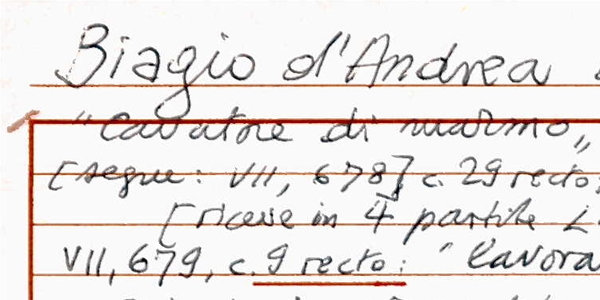 Biagio d'Andrea
"Cavatore di marmo„
[segue: VII, 678] c. 29 recto:
[riceve in 4 partite L
VII, 679, c. 9 recto: "lavora